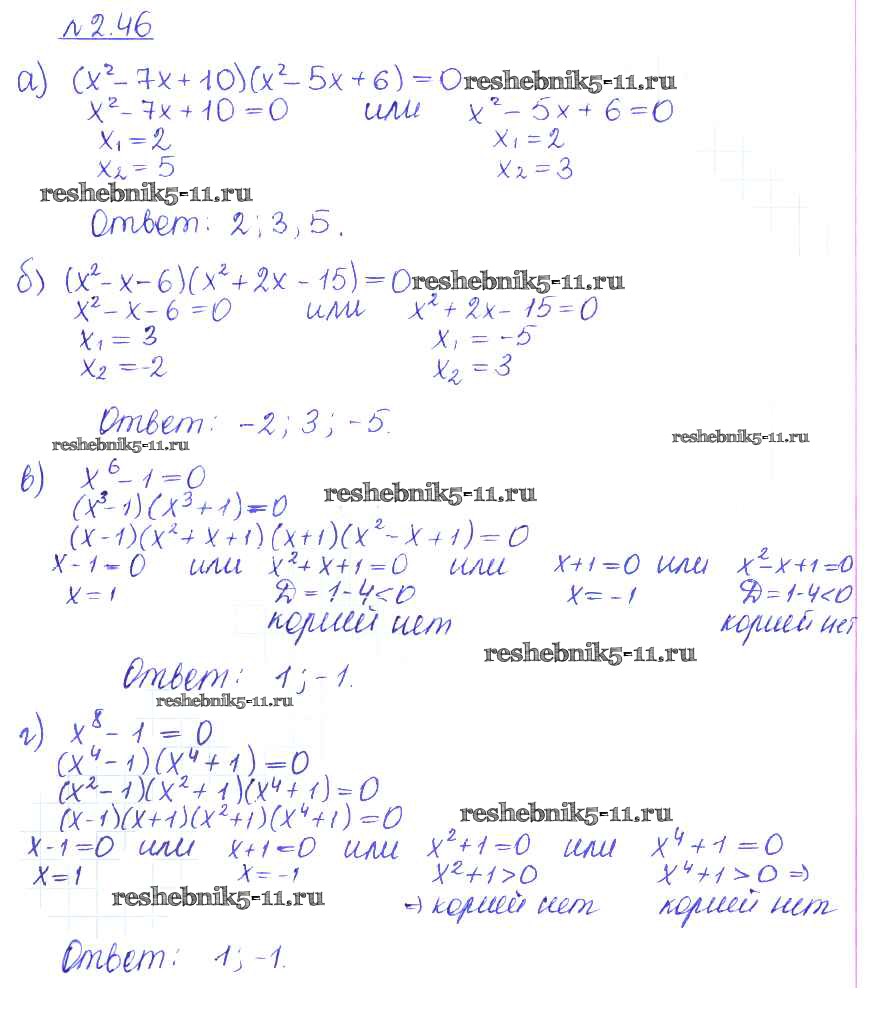 №2.46
а) (x²-7x+10)(x²-5x+6)=0 reshebnik5-11.ru
x²-7x+10=0 или x²-5x+6=0
x₁=2 x₁=2
x₂=5 x₂=3
reshebnik5-11.ru
Ответ: 2; 3, 5.
б) (x²-x-6)(x²+2x-15)=0 reshebnik5-11.ru
x²-x-6=0 или x²+2x-15=0
x₁=3 x₁=-5
x₂=-2 x₂=3
Ответ: -2; 3; -5.
reshebnik5-11.ru reshebnik5-11.ru
в) x⁶-1=0
reshebnik5-11.ru
(x³-1)(x³+1)=0
(x-1)(x²+x+1)(x+1)(x²-x+1)=0
x-1=0 или x²+x+1=0 или x+1=0 или x²-x+1=0
x=1 D=1-4<0 x=-1 D=1-4<0
корней нет корней нет
reshebnik5-11.ru
Ответ: 1; -1.
reshebnik5-11.ru
г) x⁸-1=0
(x⁴-1)(x⁴+1)=0
(x²-1)(x²+1)(x⁴+1)=0
(x-1)(x+1)(x²+1)(x⁴+1)=0 reshebnik5-11.ru
x-1=0 или x+1=0 или x²+1=0 или x⁴+1=0
x=1 x=-1 x²+1>0 x⁴+1>0 ⇒
reshebnik5-11.ru ⇒ корней нет корней нет
Ответ: 1; -1.